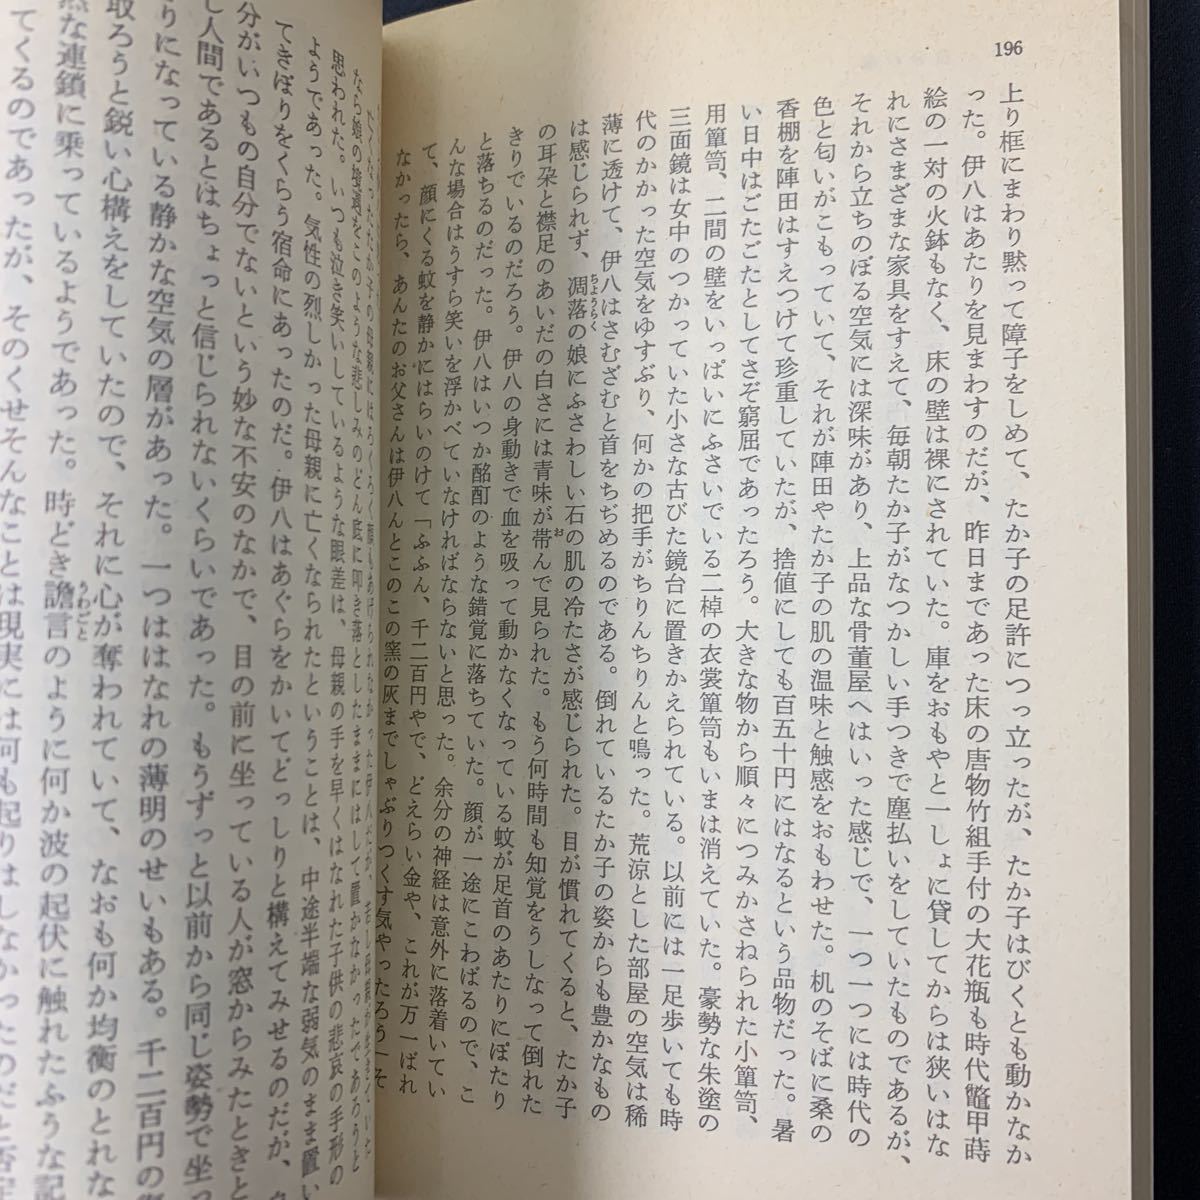 196
上り框にまわり黙って障子をしめて、たか子の足許につっ立ったが、たか子はびくとも動かなか
った。伊八はあたりを見まわすのだが、昨日まであった床の唐物竹組手付の大花瓶も時代鼈甲蒔
絵の一対の火鉢もなく、床の壁は裸にされていた。庫をおもやと一しょに貸してからは狭いはな
れにさまざまな家具をすえて、毎朝たか子がなつかしい手つきで塵払いをしていたものであるが、
それから立ちのぼる空気には深味があり、上品な骨董屋へはいった感じで、一つ一つには時代の
色と匂いがこもっていて、それが陣田やたか子の肌の温味と触感をおもわせた。机のそばに桑の
香棚を陣田はすえつけて珍重していたが、捨値にしても百五十円にはなるという品物だった。暑
い日中はごたごたとしてさぞ窮屈であったろう。大きな物から順々につみかさねられた小簞笥、
用簞笥、二間の壁をいっぱいにふさいでいる二棹の衣裳簞笥もいまは消えていた。豪勢な朱塗の
三面鏡は女中のつかっていた小さな古びた鏡台に置きかえられている。以前には一足歩いても時
代のかかった空気をゆすぶり、何かの把手がちりんちりんと鳴った。荒涼とした部屋の空気は稀
薄に透けて、伊八はさむざむと首をちぢめるのである。倒れているたか子の姿からも豊かなもの
は感じられず、凋落の娘にふさわしい石の肌の冷たさが感じられた。目が慣れてくると、たか子
ちょうらく
の耳朶と襟足のあいだの白さには青味が帯んで見られた。もう何時間も知覚をうしなって倒れた
お
きりでいるのだろう。伊八の身動きで血を吸って動かなくなっている蚊が足首のあたりにぽたり
と落ちるのだった。伊八はいつか酩酊のような錯覚に落ちていた。顔が一途にこわばるので、こ
んな場合はうすら笑いを浮かべていなければならないと思った。余分の神経は意外に落着いてい
て、顔にくる蚊を静かにはらいのけて「ふふん、千二百円やで、どえらい金や、これが万一ばれ
なかったら、あんたのお父さんは伊八んとこのこの窯の灰までしゃぶりつくす気やったろう――そ
なら娘の後適をこのような悲しみのどん底に叩き落としたままにはして置かなかったであろうと
思われた。いつも泣き笑いしているような眼差は、母親の手を早くはなれた子供の悲哀の手形の
ようであった。気性の烈しかった母親に亡くなられたということは、中途半端な弱気のまま置い
てきぼりをくらう宿命にあったのだ。伊八はあぐらをかいてどっしりと構えてみせるのだが、
分がいつもの自分でないという妙な不安のなかで、目の前に坐っている人が窓からみたときと
し人間であるとはちょっと信じられないくらいであった。もうずっと以前から同じ姿勢で坐っ
りになっている静かな空気の層があった。一つははなれの薄明のせいもある。千二百円の
取ろうと鋭い心構えをしていたので、それに心が奪われていて、なおも何か均衡のとれな
然な連鎖に乗っているようであった。時どき譫言のように何か波の起伏に触れたふうな記
うわごと
てくるのであったが、そのくせそんなことは現実には何も起りはしなかったのだと否定